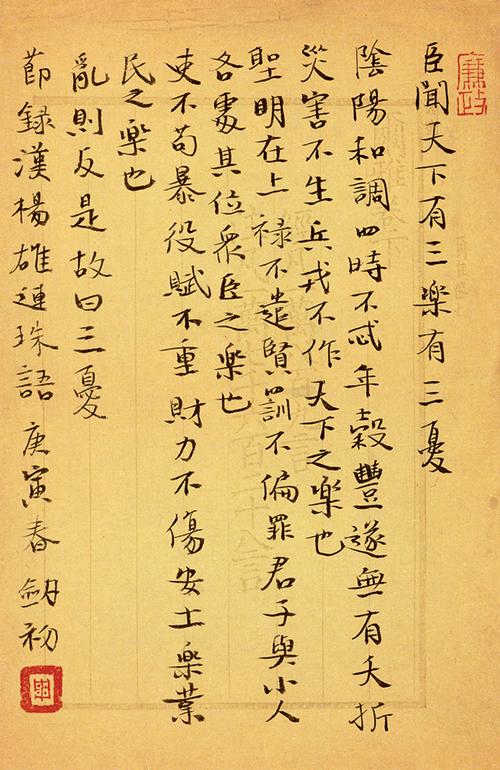 臣聞天下有三楽有三憂
陰陽和調四時不忒年穀豐遂無有夭折
災害不生兵戎不作天下之楽也
聖明在上禄不遺賢訓不偏罪君子與小人
各處其位衆臣之楽也
吏不苟暴役賦不重財力不傷安土楽業
民之楽也
亂則反是故曰三憂
節録漢楊雄連珠語庚寅春劔初